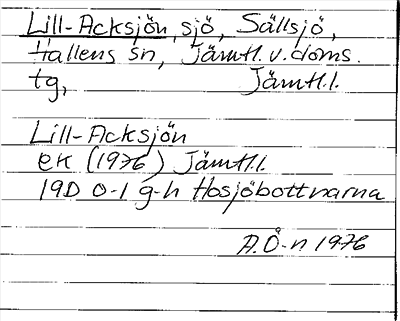 Lill-Acksjön, sjö, Sällsjö,
Hallens sn, Jämtl. v. doms.
tg, Jämtl.l.
Lill-Acksjön
ek (1976) Jämtl.l.
19D 0-1 g-h Hosjöbottnarna
A.Ö-n 1976